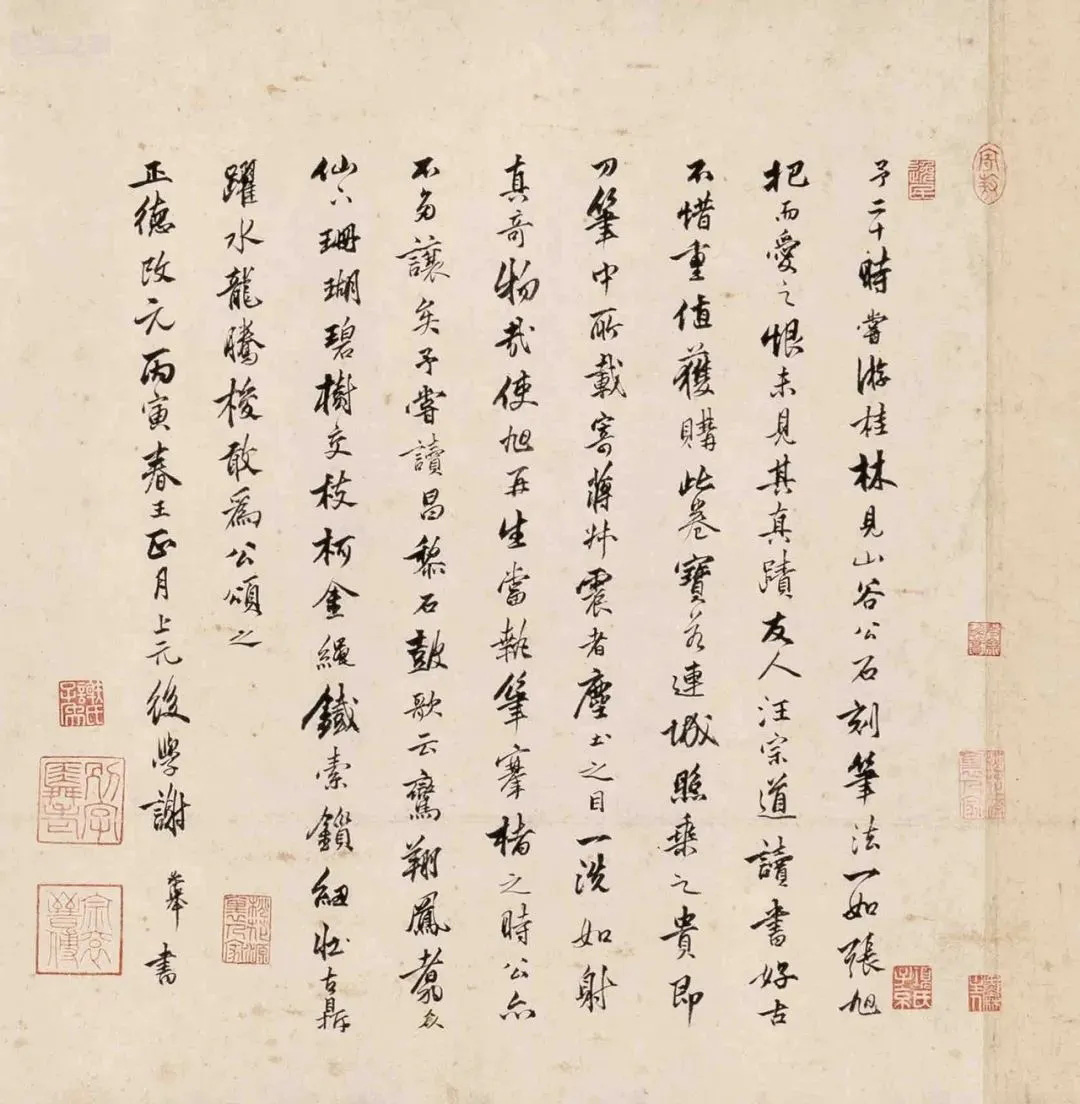 予二十時嘗游桂林見山谷公石刻筆法一如張旭
把而愛之恨未見其真蹟友人汪宗道讀書好古
不惜重值獲購此卷寶若連城照乘之貴即
刀筆中所載寄蔣艸震者塵土之目一洗如射
真奇物哉使旭再生當執筆搴楮之時公亦
不多讓矣予嘗讀昌黎石鼓歌云鸞翔鳳翥衆
仙下珊瑚碧樹交枝柯金繩鐵索鎖紐壯古鼎
躍水龍騰梭敢為公頌之
正德改元丙寅春王正月上元後學謝 書
項氏子京